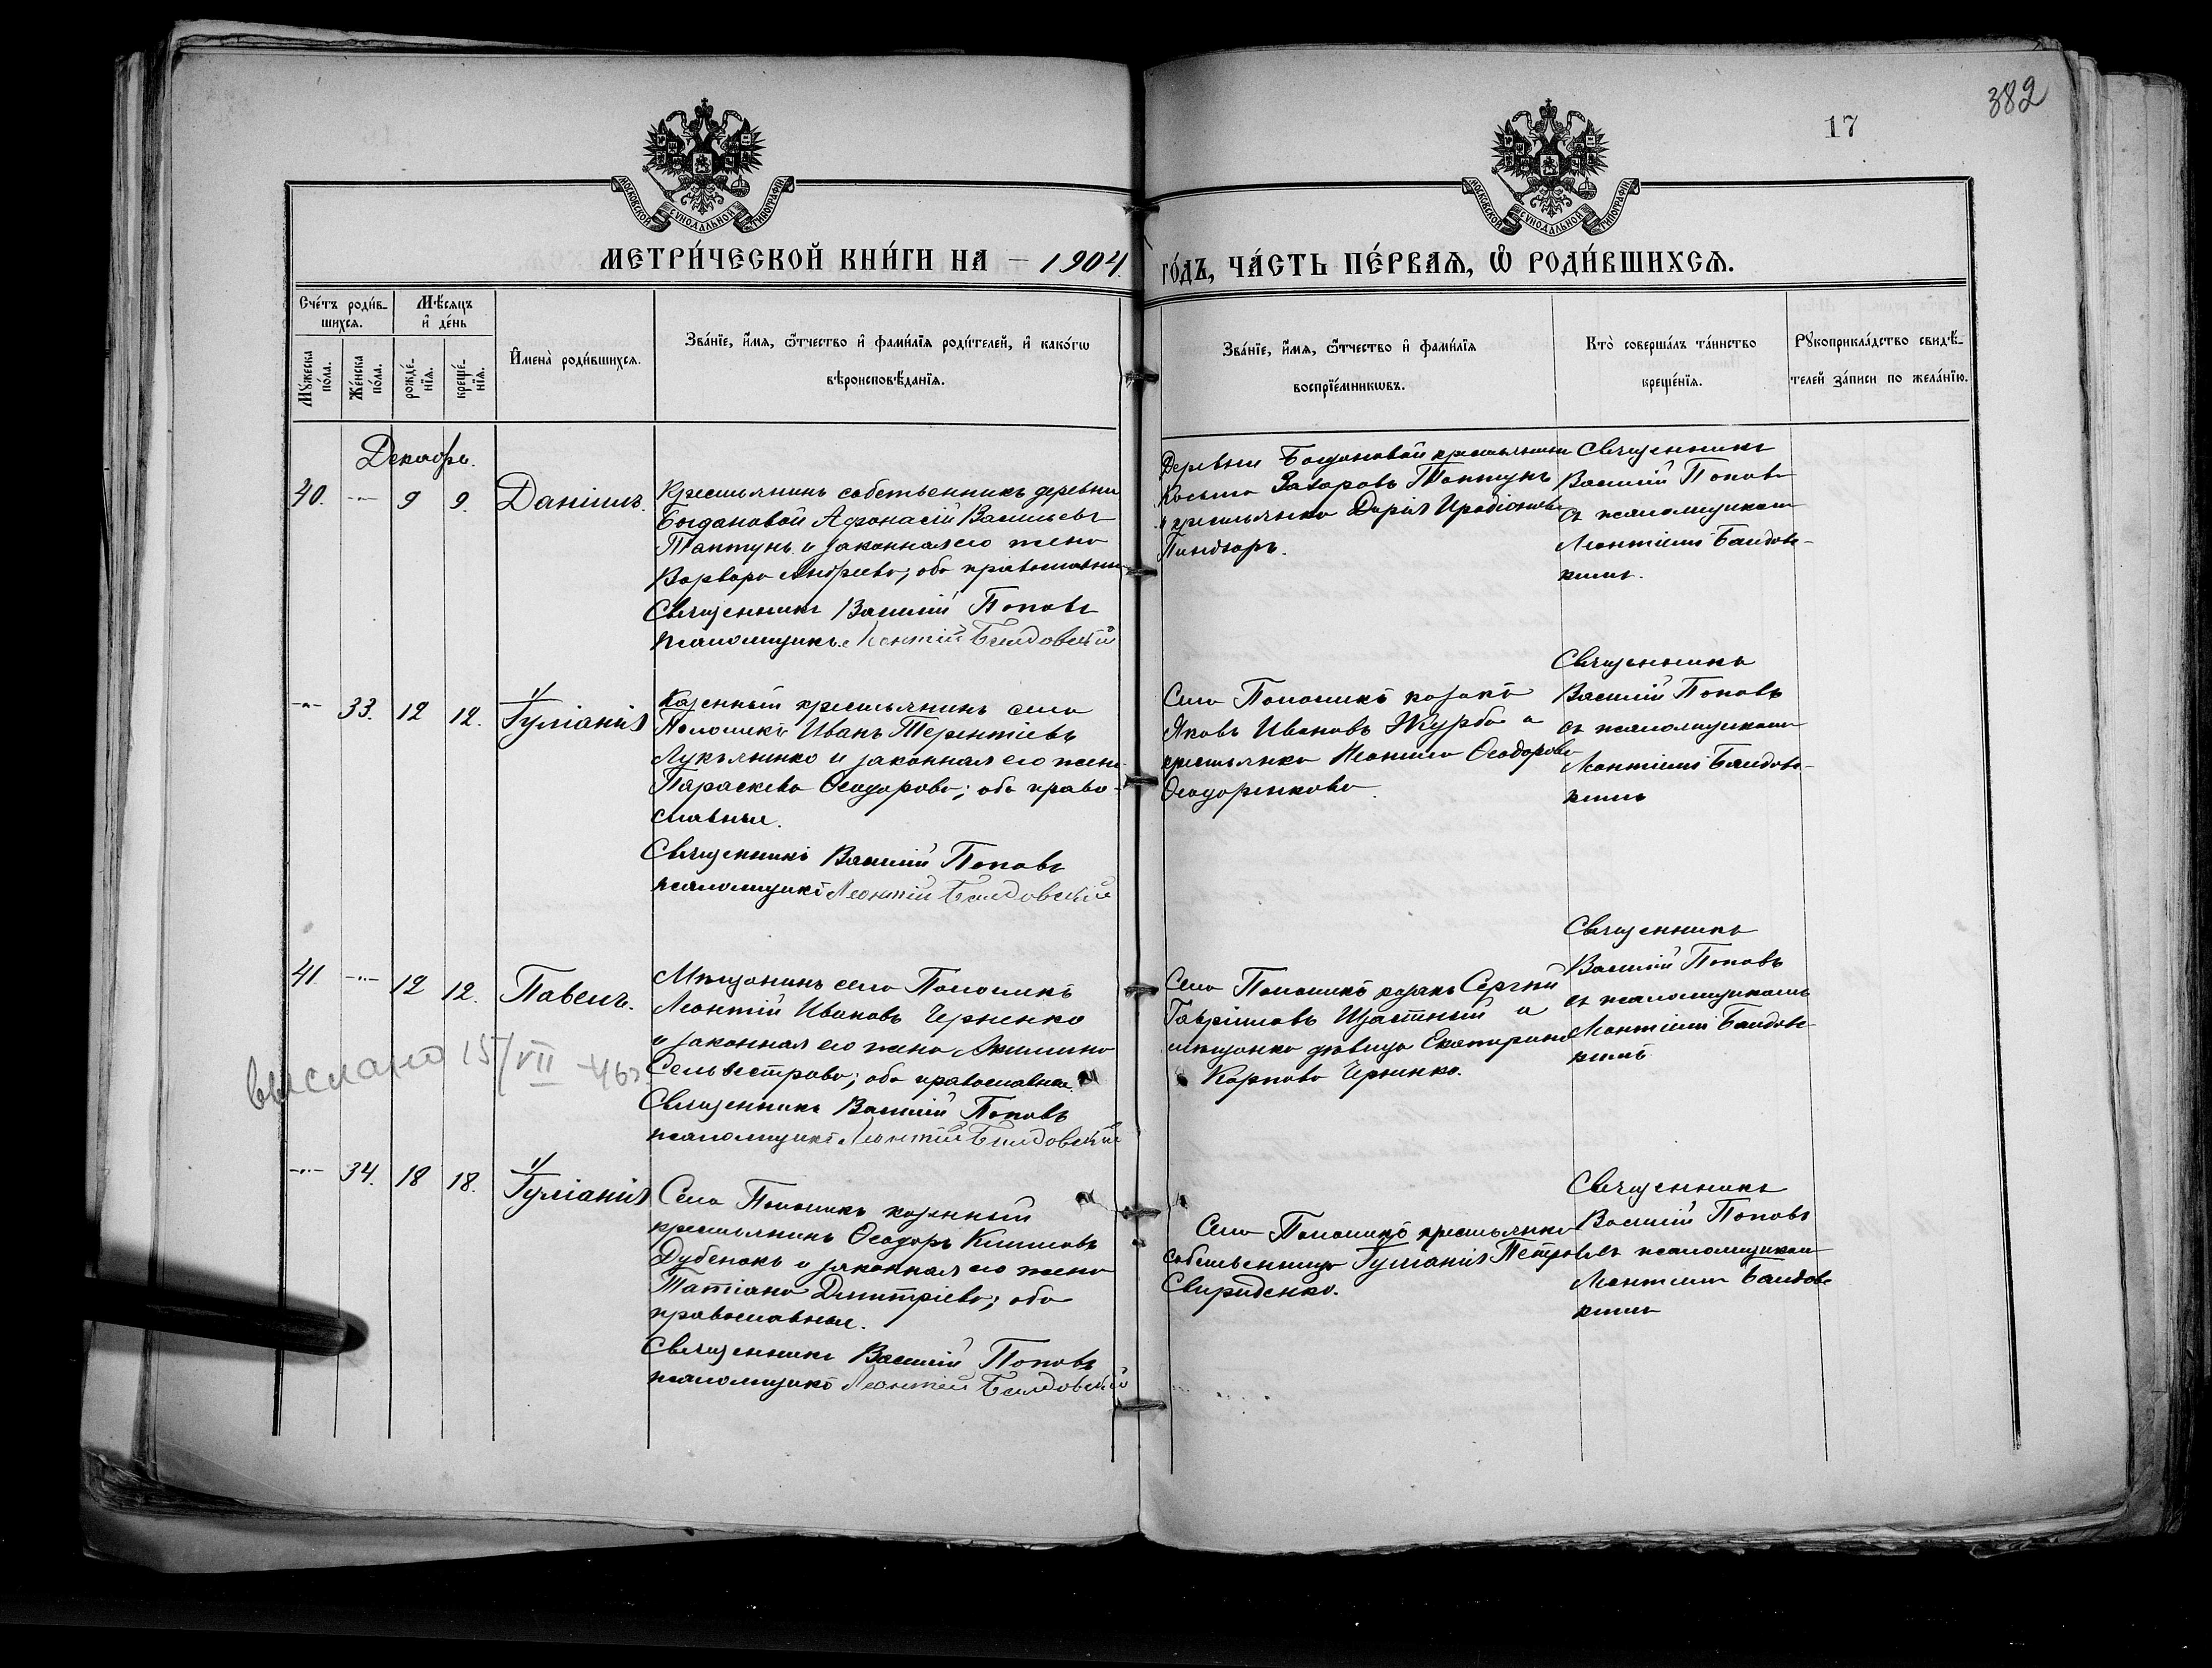 382
17
МОСКОВСКОЙ СѴНОДАЛЬНОЙ ТИПОГРАФІИ
МОСКОВСКОЙ СѴНОДАЛЬНОЙ ТИПОГРАФІИ
МЕТРИ́ЧЕСКОЙ КНИ́ГИ НА 1904 ГО́ДЪ, ЧА́СТЬ ПЕ́РВАѦ, Ѡ҆ РОДИ́ВШИХСѦ.
Сче́тъ роди́в-
шихсѧ.
Мꙋжеска по́ла.
Же́нска по́ла.
Мѣ́сѧцъ
и҆ де́нь
рожде́-
нїѧ.
креще́-
нїѧ.
И҆мена̀ роди́вшихсѧ.
Зва́нїе, и҆́мѧ, ѻ҆́тчество и҆ фами́лїѧ роди́телей, и҆ како́гѡ
вѣроисповѣ́данїѧ.
Зва́нїе, и҆́мѧ, ѻ҆́тчество и҆ фами́лїѧ
воспрїе́мникѡвъ.
Кто̀ соверша́лъ та́инство
креще́нїѧ.
Рꙋкоприкла́дство свидѣ́-
телей за́писи по жела́нїю.
Декабрь.
40. -"- 9 9. Даніилъ.
Крестьянинъ собственникъ деревни
Богдановой Афонасій Васильевъ
Таптунъ и законная его жена
Варвара Андреева; оба православные
Священникъ Василій Поповъ
псаломщикъ Леонтій Балдовскій
Деревни Богдановой крестьянинъ
Косьма Захаровъ Таптунъ
и крестьянка Дарія Иродіонова
Священникъ
Василій Поповъ
съ псаломщикомъ
Леонтіемъ Балдов-
скимъ.
-"- 33. 12 12. Іуліанія
Казенный крестьянинъ села
Положекъ Иванъ Терентіевъ
Лукьяненко и законная его жена
Параскева Ѳеодорова; оба право-
славные.
Священникъ Василій Поповъ
псаломщикъ Леонтій Балдовскій
Села Положекъ козакъ
Яковъ Ивановъ Журба и
крестьянка Ѳеодорова
Ѳеодоренкова
Священникъ
Василій Поповъ
съ псаломщикомъ
Леонтіемъ Балдов-
скимъ
41 -"- 12 12. Павелъ.
Мѣщанинъ села Положекъ
Леонтій Ивановъ Черненко
и законная его жена Акилина
Сельвестрова; оба православные.
Священникъ Василій Поповъ
псаломщикъ Леонтій Балдовскій
Села Положекъ козакъ Сергій
Гавріиловъ Щастный и
мѣщанка дѣвица Екатерина
Карпова Черненко.
Священникъ
Василій Поповъ
съ псаломщикомъ
Леонтіемъ Балдов-
скимъ
выслано 15/VII -46
-"- 34. 18 18. Іуліанія
Села Положекъ казенный
крестьянинъ Ѳеодоръ Климовъ
Дубенокъ и законная его жена
Татіана Димитріева; оба
православные.
Священникъ Василій Поповъ
псаломщикъ Леонтій Балдовскій
Села Положекъ крестьянка
собственница Іуліанія Петрова
Свириденко.
Священникъ
Василій Поповъ
съ псаломщикомъ
Леонтіемъ Балдов
скимъ